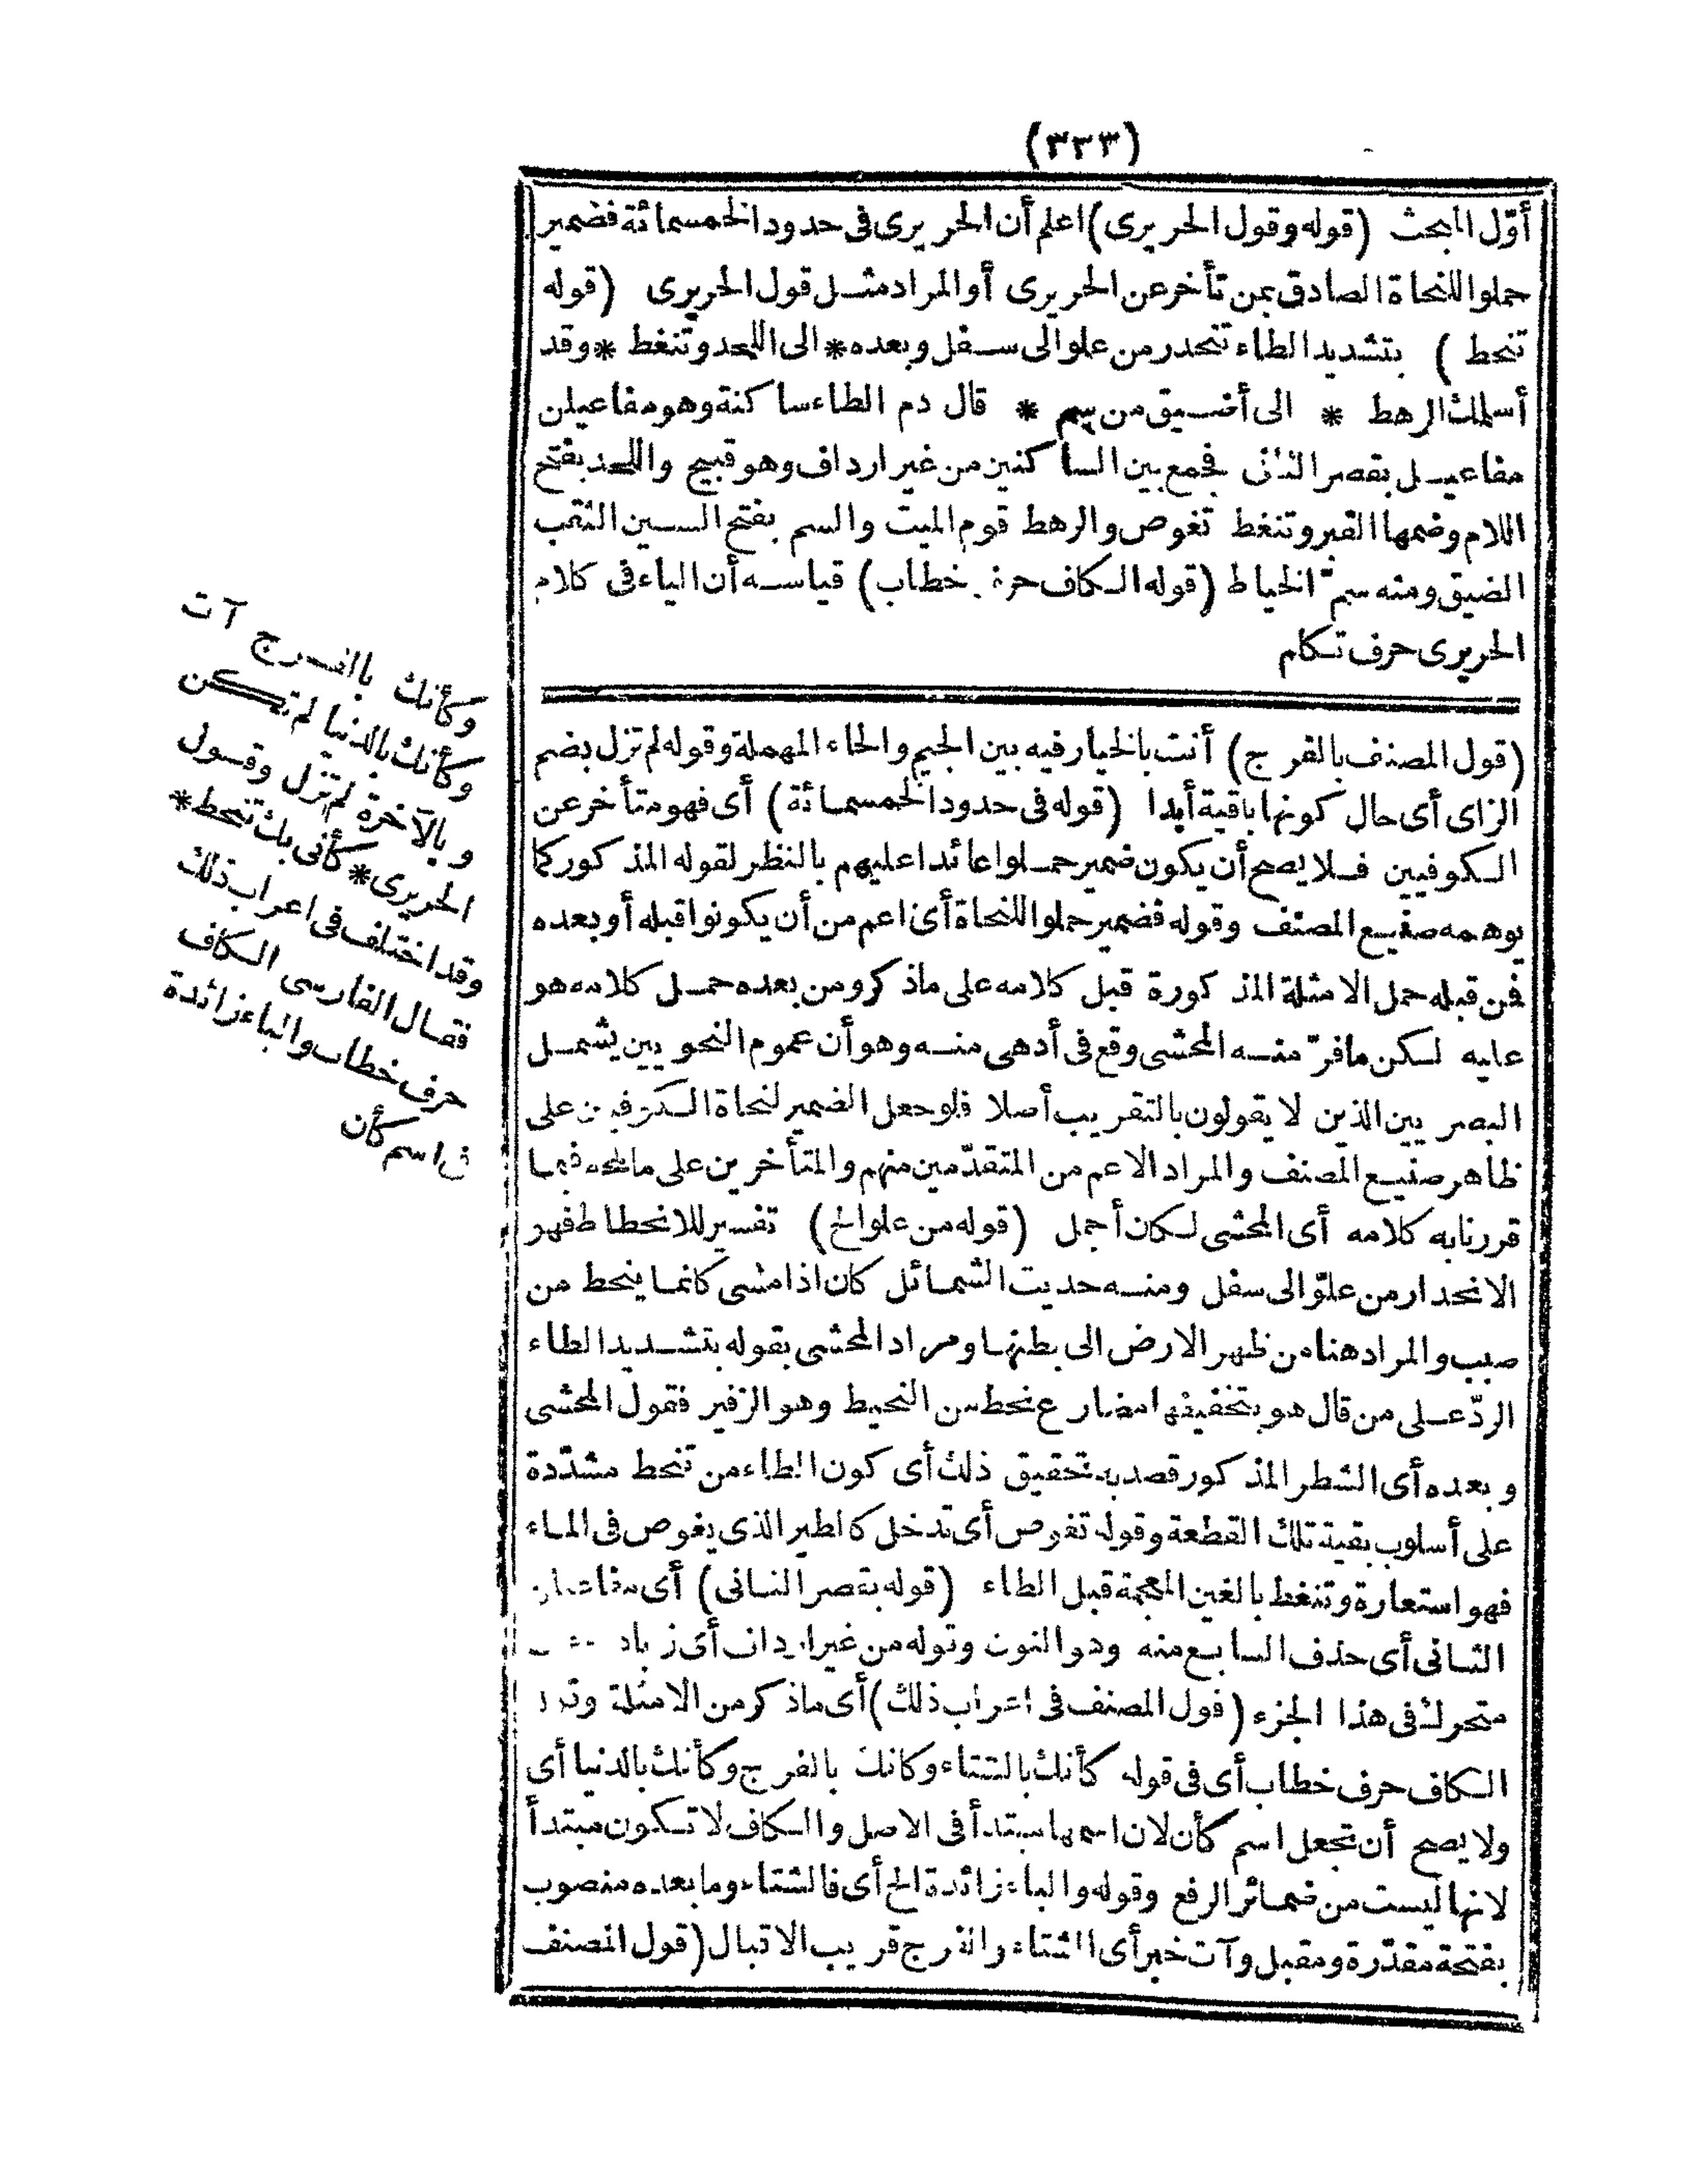 (٣٣٣)
أوّل المبحث (قوله وقول الحريرى) اعلم أن الحريرى فى حدود الخمسمائة فضمير
حملوا للنحاة الصادق بمن تأخر عن الحريرى أو المراد مثل قول الحريرى (قوله
تنحط) بتشديد الطاء تنحدر من علو الى سفل وبعده * الى اللحد وتنغط * وقد
أسلمك الرهط * الى أضيق من سم * قال دم الطاء ساكنة وهو مفاعيلن
مفاعيل بقصر الثانى فجمع بين الساكنين من غير ارداف وهو قبيح واللحد بفتح
اللام وضمها القبر وتنغط تغوص والرهط قوم الميت والسم بفتح السين الثقب
الضيق ومنه سمّ الخياط (قوله الكاف حرف خطاب) قياسه أن الياء فى كلام
الحريرى حرف تكلم
(قول المصنف بالفرج) أنت بالخيار فيه بين الجيم والحاء المهملة وقوله لم تزل بضم
الزاى أى حال كونها باقية أبدا (قوله فى حدود الخمسمائة) أى فهو متأخر عن
الكوفيين فلا يصح أن يكون ضمير حملوا عائدا عليهم بالنظر لقوله المذكور كما
يوهمه صنيع المصنف وقوله فضمير حملوا للنحاة أى اعم من أن يكونوا قبله أو بعده
فمن قبله حمل الامثلة المذكورة قبل كلامه على ماذكر ومن بعده حمل كلامه هو
عليه لكن مافرّ منه المحشى وقع فى أدهى منه وهو أن عموم النحويين يشمل
البصريين الذين لا يقولون بالتقريب أصلا فلو جعل الضمير لنحاة الكوفيين على
ظاهر صنيع المصنف والمراد الاعم من المتقدّمين منهم والمتأخرين على مالمحه فيما
قررنا به كلامه أى المحشى لكان أجمل (قوله من علو الخ) تفسير للانحطاط فهو
الانحدار من علوّ الى سفل ومنه حديث الشمائل كان اذا مشى كانما ينحط من
صبب والمراد هنا من ظهر الارض الى بطنها ومراد المحشى بقوله بتشديد الطاء
الردّ على من قال هو بتخفيفها مضارع نحط من النحيط وهو الزفير فقول المحشى
وبعده أى الشطر المذكور قصد به تحقيق ذلك أى كون الطاء من تنحط مشدّدة
على أسلوب بقية تلك القطعة وقوله تغوص أى تدخل كالطير الذى يغوص فى الماء
فهو استعارة وتنغط بالغين المعجمة قبل الطاء (قوله بقصر الثانى) أى مفاعيلن
الثانى أى حذف السابع منه وهو النون وقوله من غير ارداف أى
متحرك فى هذا الجزء (قول المصنف فى اعراب ذلك) أى ماذكر من الامثلة
الكاف حرف خطاب أى فى قوله كأنك بالشتاء وكانك بالفرج وكأنك بالدنيا أى
ولا يصح أن تجعل اسم كأن لان اسمها مبتدأ فى الاصل والكاف لا تكون مبتدأ
لانها ليست من ضمائر الرفع وقوله والباء زائدة الخ أى فالشتاء وما بعده منصوب
بفتحة مقدّرة ومقبل وآت خبر أى الشتاء والفرج قريب الاقبال (قول المصنف
وكأنك بالفرج آت
وكأنك بالدنيا لم تكن
وبالآخرة لم تزل وقول
الحريرى * كأنى بك تنحط *
وقد اختلف فى اعراب ذلك
فقال الفارسى الكاف
حرف خطاب والباء زائدة
فى اسم كأن